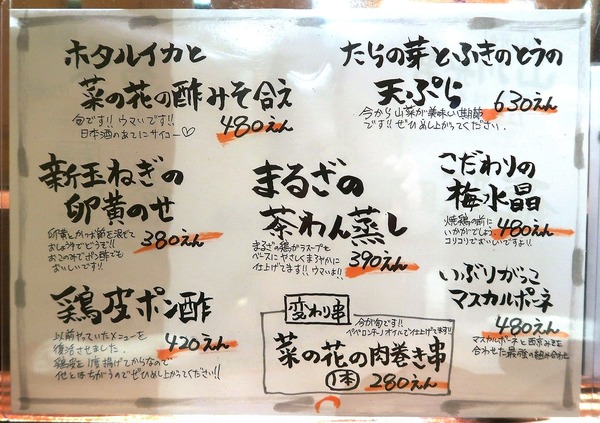 ホタルイカと
菜の花の酢みそ合え
旬です!! ウマいです!!
日本酒のあてにサイコー♡
480えん
たらの芽とふきのとうの
天ぷら
630えん
今から山菜が美味しい時期
です!! ぜひめし上がってください。
新玉ねぎの
卵黄のせ
卵黄とかつお節を混ぜて
おしょう油でどうぞ!!
お好みでポン酢でも
おいしいです!!
380えん
まるざの
茶わん蒸し
まるざの鶏がらスープを
ベースにやさしくまろやかに
仕上げてます!! ウマいよ!!
390えん
こだわりの
梅水晶
焼鶏の前に
いかがでしょう
コリコリでおいしいですよ!!
480えん
鶏皮ポン酢
以前やっていたメニューを
復活させました。
鶏皮を1度揚げてからなので
他とはちがうのでぜひめし上がってください!!
420えん
変わり串
今が旬です!!
ペペロンチーノオイルで仕上げてます!!
菜の花の肉巻き串
1本 280えん
いぶりがっこ
マスカルポーネ
480えん
マスカルポーネと西京みそを
合わせた最強の組み合わせ